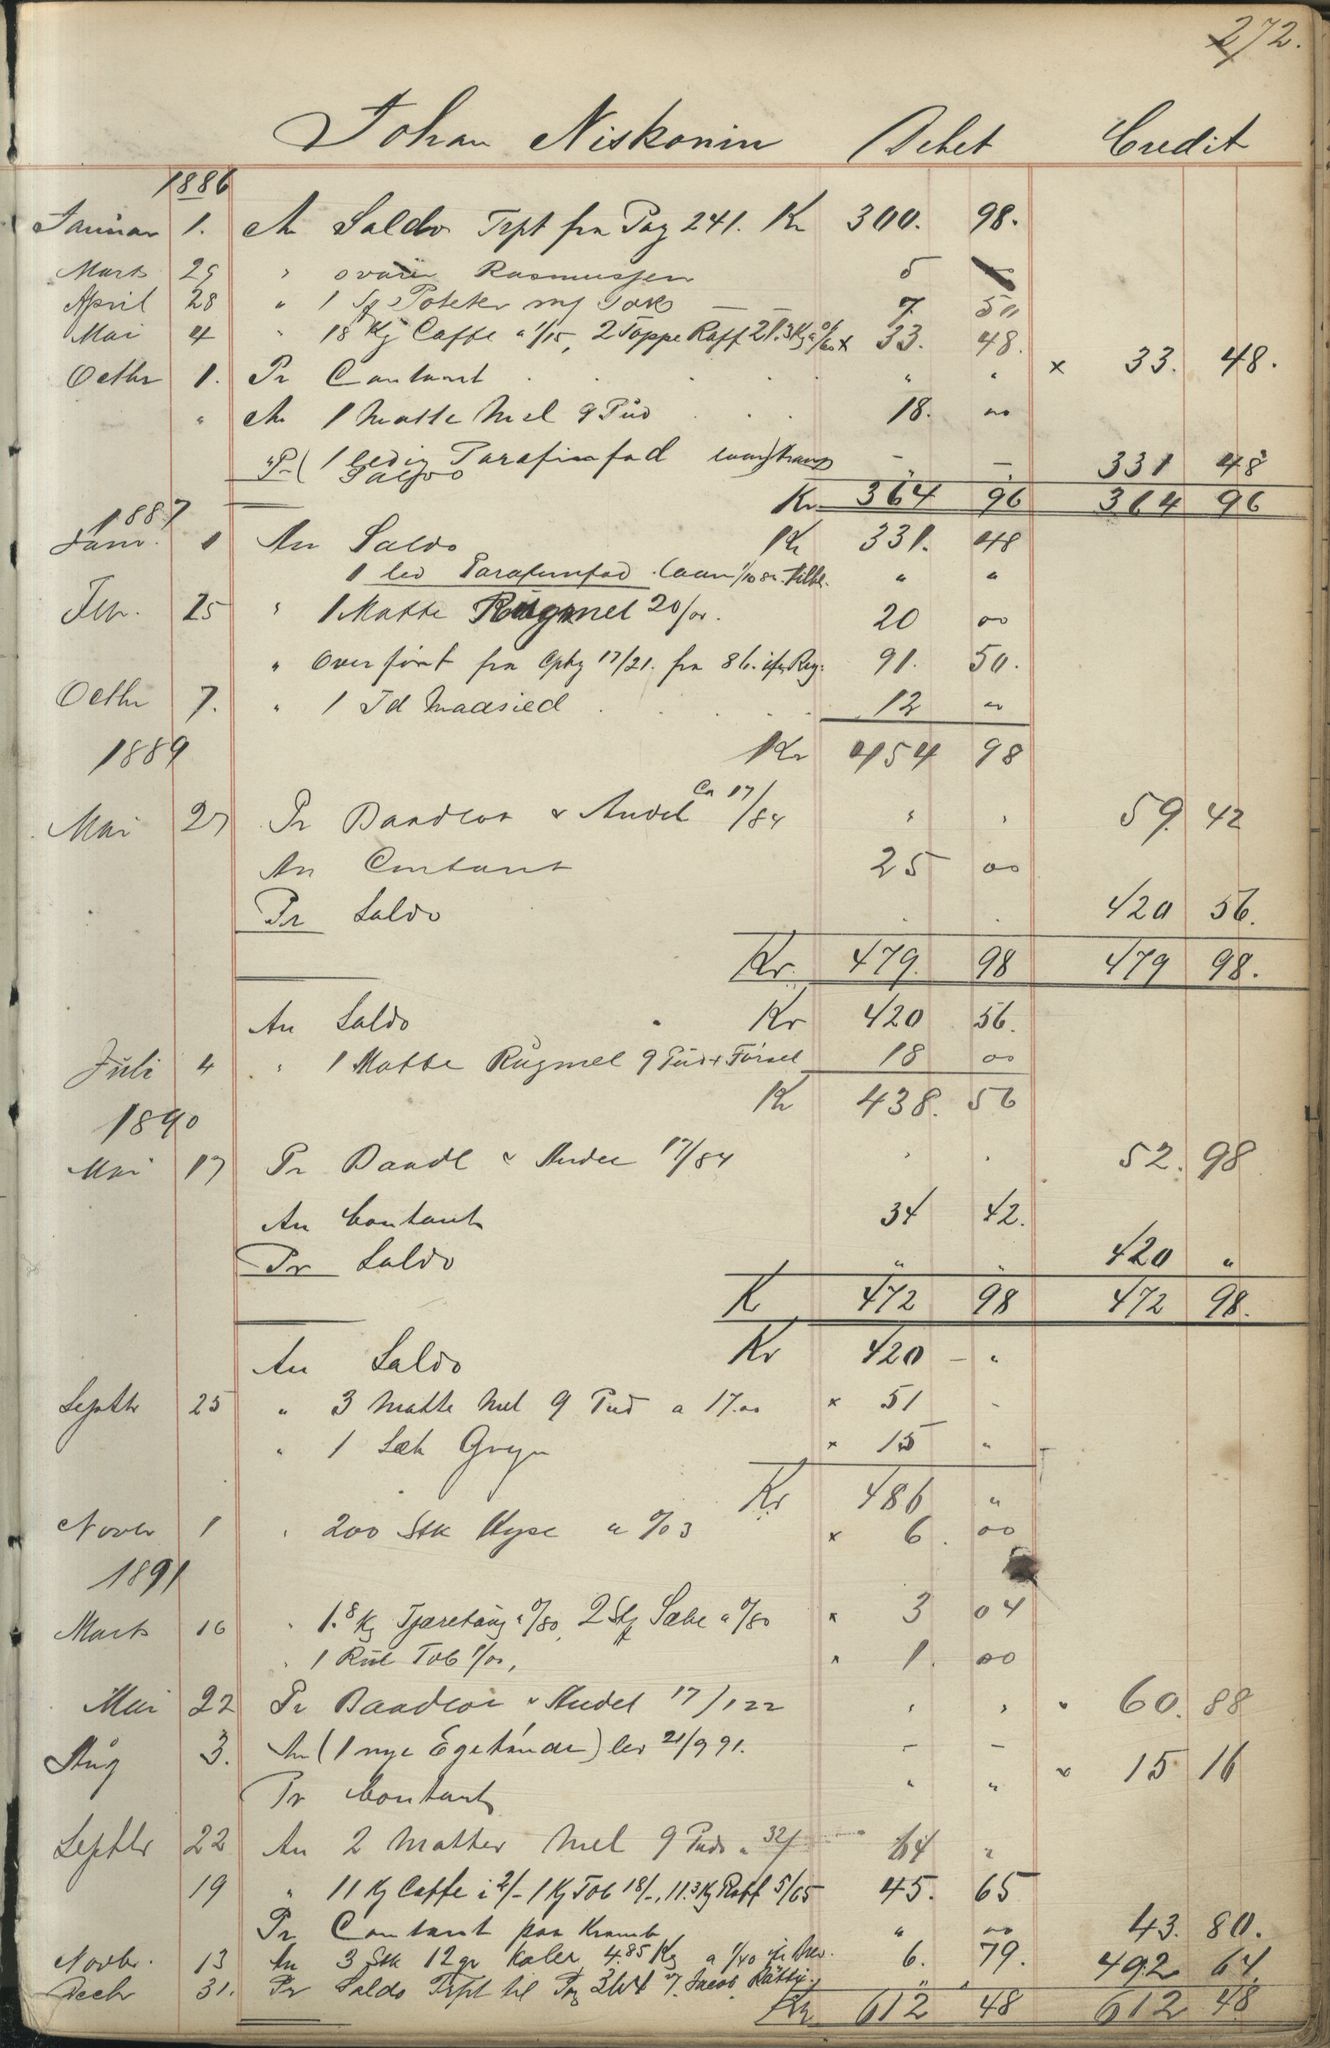 272.
Johan Niskonin Debet Credit
1886
Januar 1. An Saldo Trpt fra Pag 241. Kr 300. 98.
Marts 29 " Rasmussen 5
April 28 " 1 Poteter m/ Sæk — — 7. 50
Mai 4 " 18 Kg Caffe a 1/15, 2 Toppe Raff 21.3 Kg a 0/60 x 33. 48.
Octbr 1. Pr Contant . . . . " " x 33. 48.
" An 1 Matte Mel 9 Pud . . 18. 00
"Pr ( 1 ledig Parafinfad
Saldo — — 331 48
Kr 364 96 364 96
1887
Janr. 1 An Saldo Kr 331. 48
1 led Parafinfad " "
Febr. 25 " 1 Matte Rugmel 20/00. 20 00
" Overført fra 17/21. fra 86. Reg. 91. 50.
Octbr 7. " 1 Td . . . 12 00
1889 Kr 454 98
Mai 27 Pr Baadlot & Andel Ca 17/84 " " 59. 42
An Contant 25 00
Pr Saldo . . 420 56.
Kr. 479. 98 479 98.
An Saldo Kr 420 56.
Juli 4 " 1 Matte Rugmel 9 Pud 18 00
1890 Kr 438. 56
Mai 17 Pr Baadl & Andel 17/84 " " 52. 98
An Contant 34 42.
Pr Saldo " " 420 "
K 472 98 472 98.
An Saldo Kr 420 — "
Septbr 25 " 3 Matte Mel 9 Pud a 17.00 x 51 "
" 1 Sæk Gryn x 15 "
Kr 486 "
Novbr 1 " 200 Stk Hyse a 0/03 x 6. 00
1891
Marts 16 " 1.8 Kg Tjæretaug a 0/80, 2 Stg Sæbe a 0/80 x 3 04
" 1 Rul Tob 1/00, x 1. 00
Mai 22 Pr Baadlot & Andel 17/122 " " " 60. 88
Aug 3. An (1 nye Egetønde) lev 21/9 91. — —
Pr Contant " " x 15 16
Septbr 22 An 2 Matter Mel 9 Puds a 32/ 64 "
19 " 11 Kg Caffe i 2/- 1 Kg Tob 18/-, 11.3 Kg Raff 5/65 45. 65
Pr Contant paa Kramb " 00 43. 80.
Novbr. 13 An 3 Stk 12 gr Kaler 4.85 Kg a 1/40 6. 79.
Decbr 31. Pr Saldo Trpt til Pag Jacob " " 492 64.
Kr 612 48 612 48